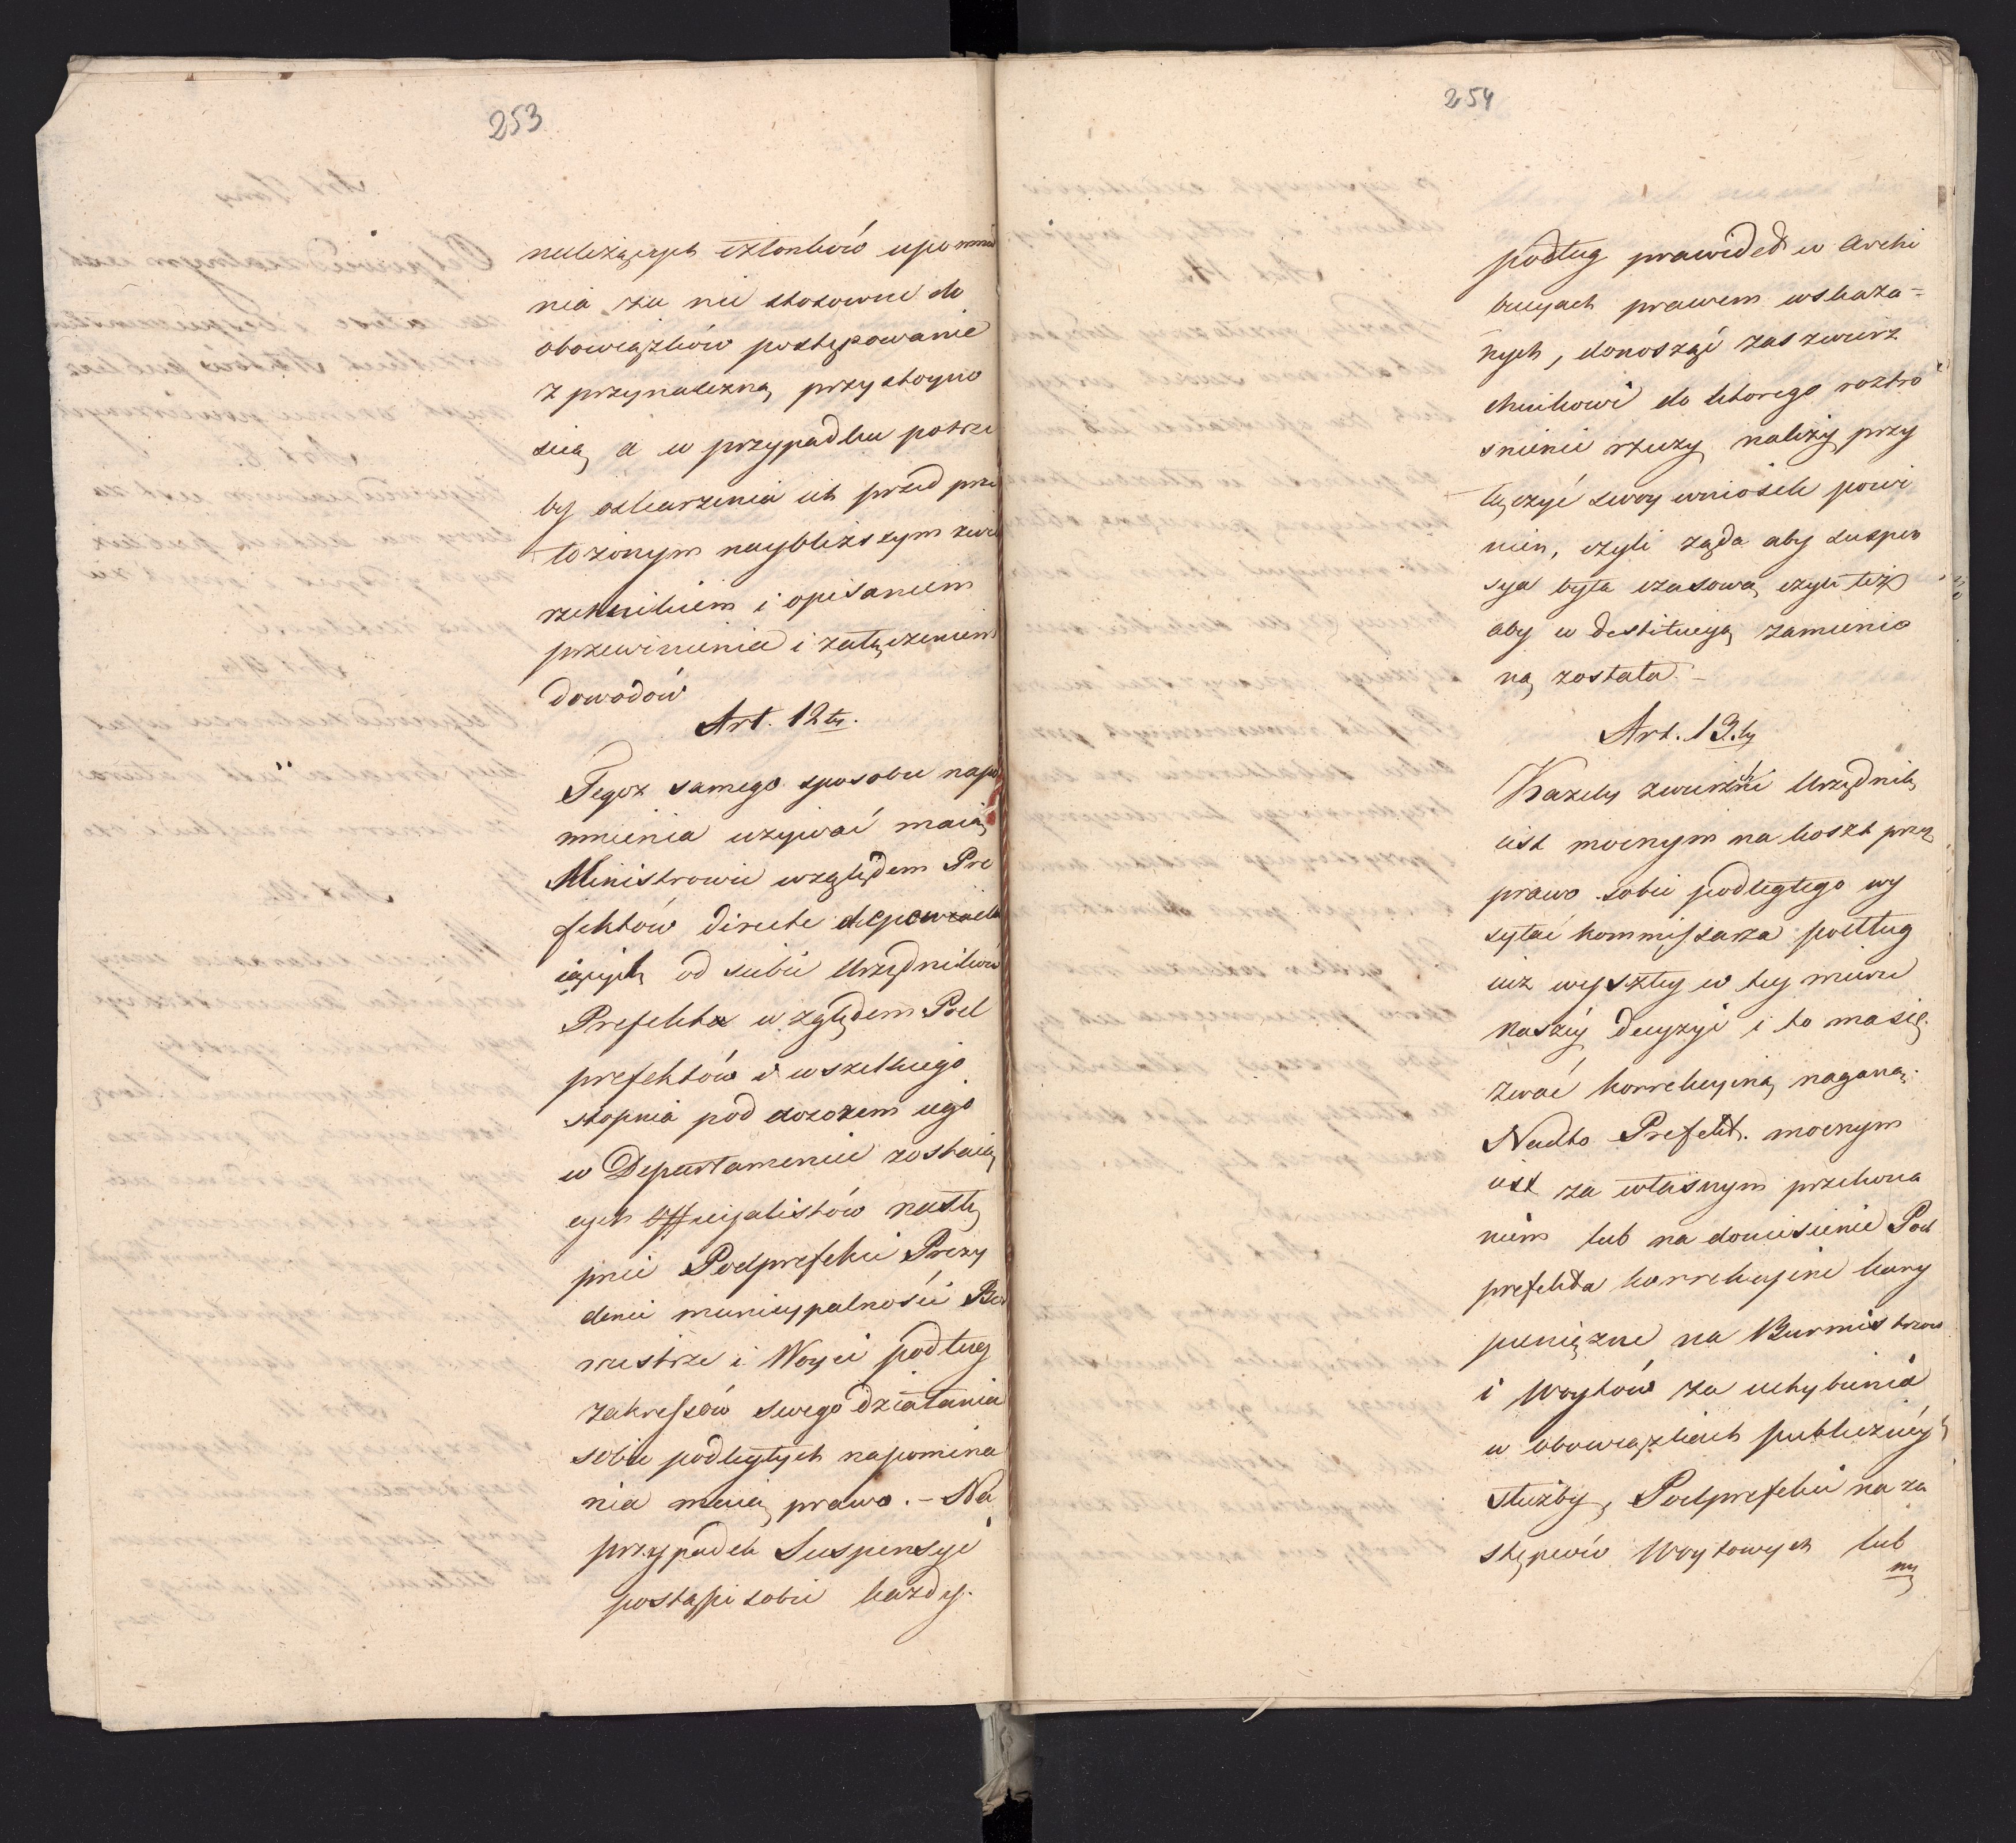 253
należących członków upomnie
nia za nie stosowne do
obowiązków postępowanie
z przynależną przystoyno
scią, a w przypadku potrze
by oskarzenia ich przed prze
łożonym naybliższym zwie
rzchnikiem i opisaniem
przewinienia i załączeniem
dowodów
Art. 12ty.
Tegoż samego sposobu napo
mnienia używać maią
Ministrowie względem Pre
fektów directe
iących od siebie Urzędników
Prefekta względem Pod
prefektów i wszelkiego
stopnia pod dozorem iego
w Departamencie zostaią
cych Officyalistów nastę
pnie Podprefekci Prezy
denci municypalności Bur
mistrze i Woyci podług
zakressów swego działania
sobie podległych napomina
nia maią prawo. - Na
przypadek Suspensyi
postąpi sobie każdy.
254
podług prawideł w Arty
kułach prawem wskaza=
nych, donosząc zaś zwierz
chnikowi do ktorego roztrzą
snienie rzeczy należy przy
łączyć swoy wniosek powi
nien, czyli żąda aby suspen
sya była czasową, czyli też
aby w destitucyą zamienio
ną została. -
Art. 13.ty
Każdy zwierzchni Urzędnik
iest mocnym na koszt przez
prawo sobie podległego wy
syłać Kommissarza podług
iuż wyszłey w tey mierze
Naszéy decyzyi i to ma się
zwać korrekcyiną naganą.
Nadto Prefekt. mocnym
iest za własnym przekona
niem lub na doniesienie Pod
prefekta korrekcyine kary
pieniężne na Burmistrzow
i Woytów za uchybienia
w obowiązkach publicznéy
służby, Podprefekci na za
stępców Woytowych lub